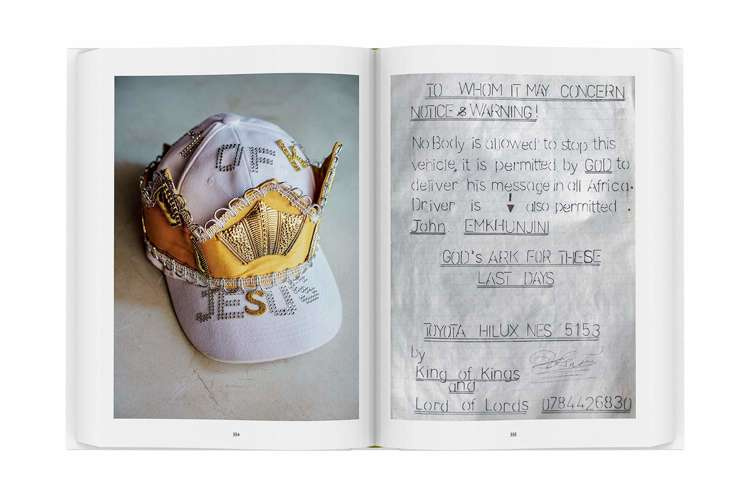 OF
JESUS
TO WHOM IT MAY CONCERN
NOTICE & WARNING!
No Body is allowed to stop this
vehicle, it is permitted by GOD to
deliver his message in all Africa.
Driver is also permitted.
John EMKHUNJINI
GOD's ARK FOR THESE
LAST DAYS
TOYOTA HILUX NES 5153
by
King of Kings
and
Lord of Lords 0784426830